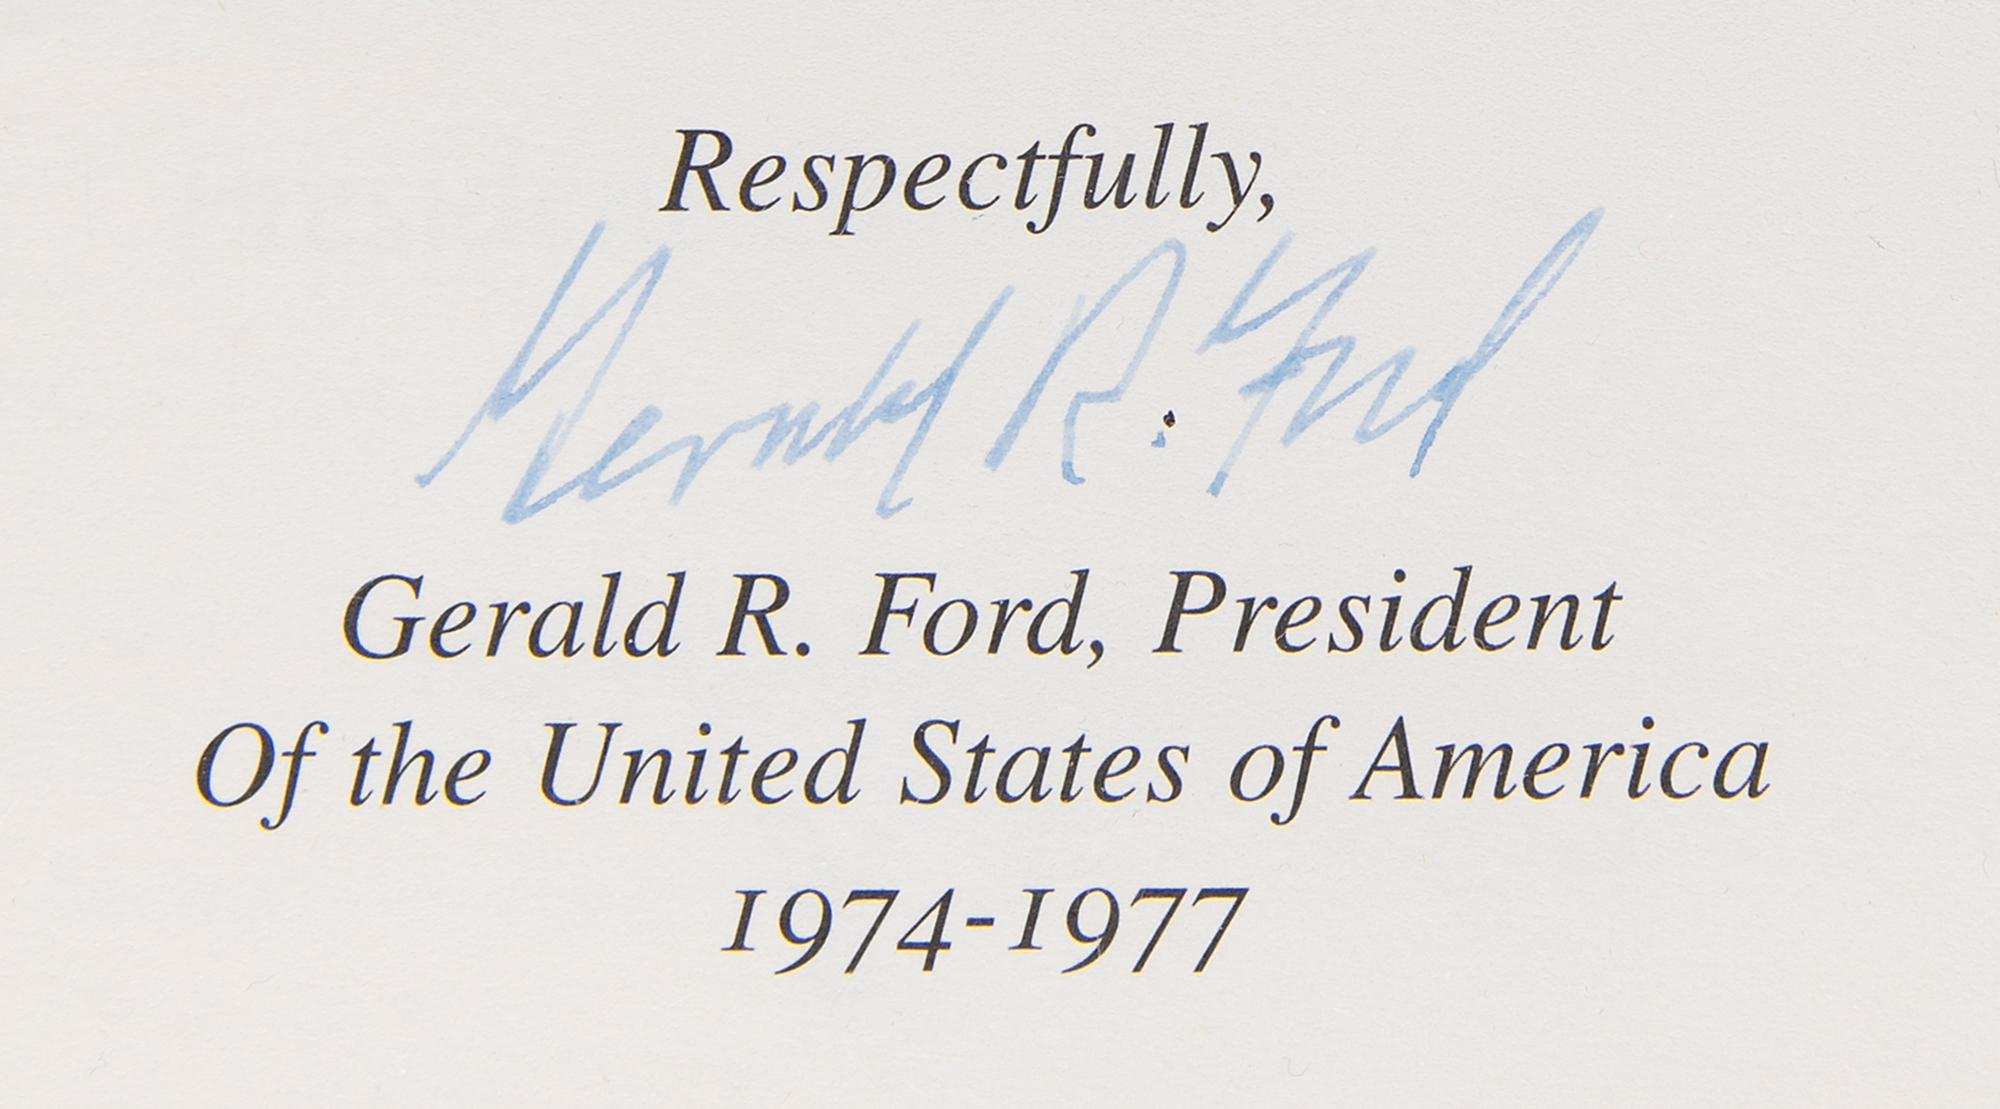 Respectfully,
Gerald R. Ford
Gerald R. Ford, President
Of the United States of America
1974-1977